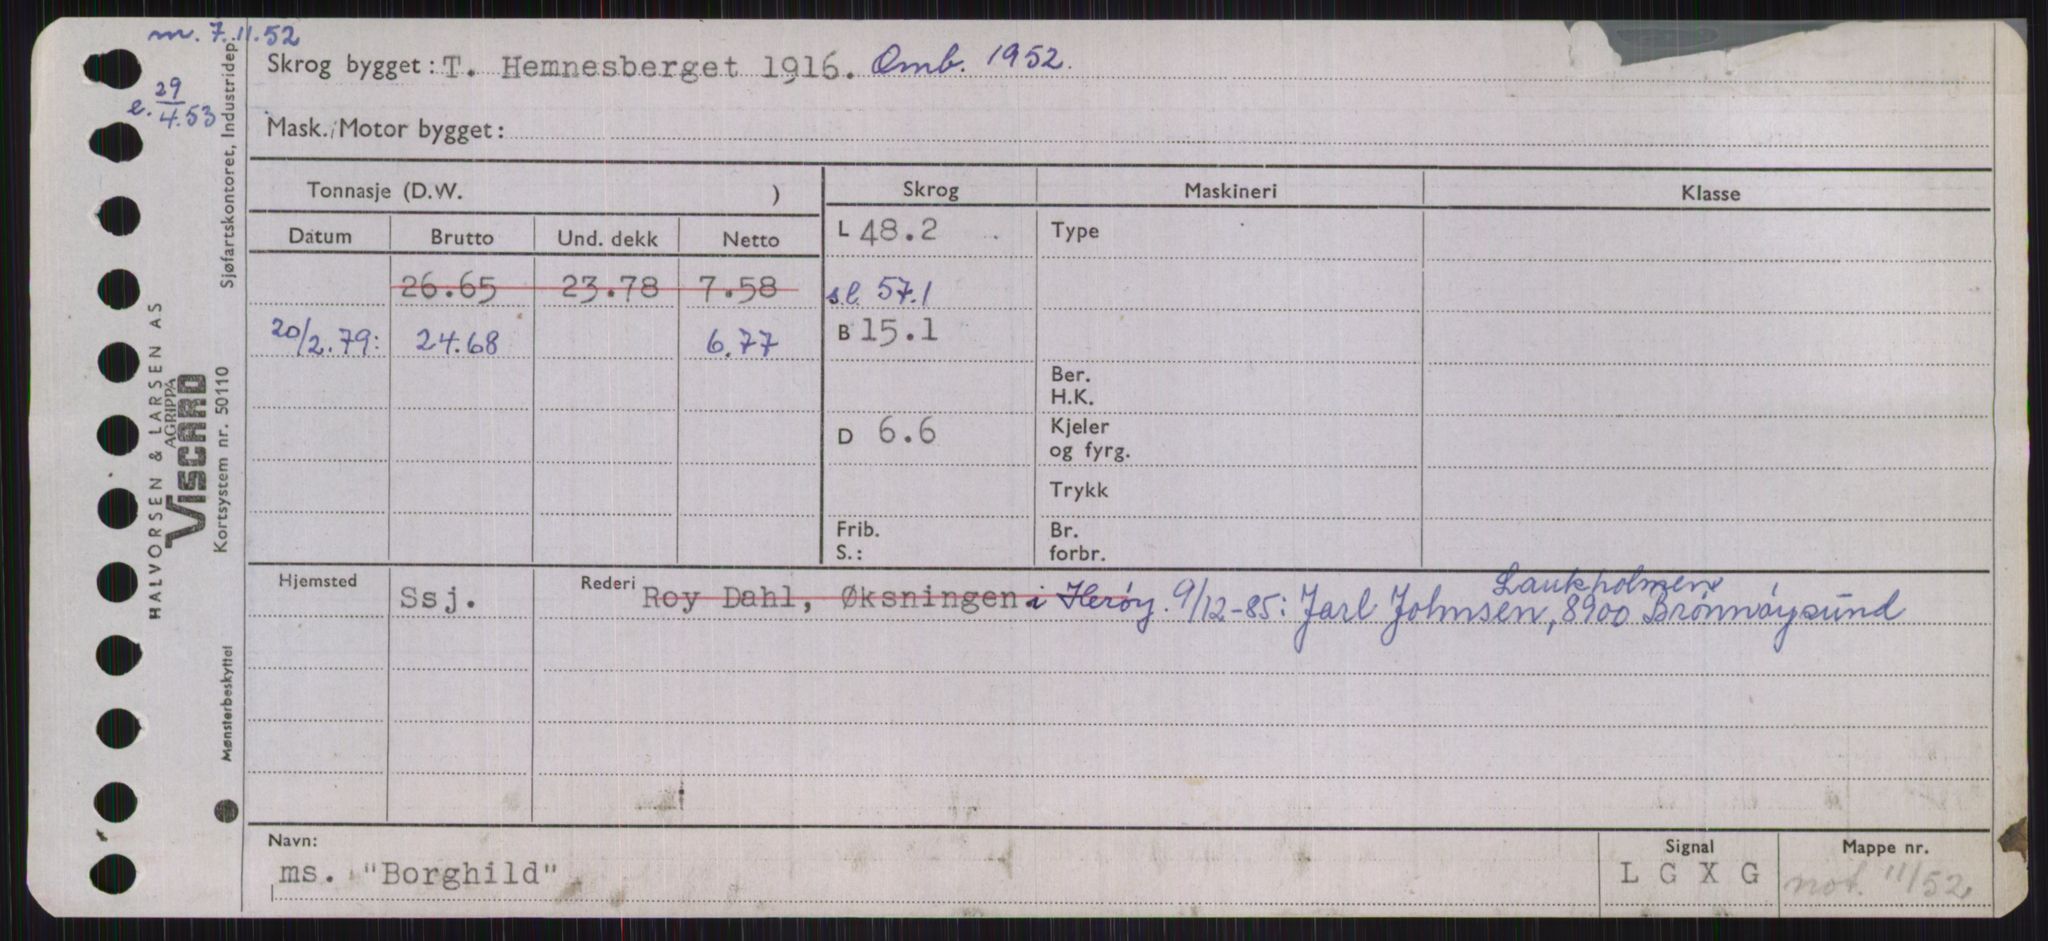 m. 7.11.52
e. 29/4.53
Skrog bygget: T. Hemnesberget 1916. Omb. 1952.
Mask./Motor bygget:
Tonnasje (D.W. )
Skrog
Maskineri
Klasse
Datum Brutto Und. dekk Netto
L 48.2
Type
26.65 23.78 7.58
s.l 57.1
20/2.79: 24.68 6.77
B 15.1
Ber.
H.K.
D 6.6
Kjeler
og fyrg.
Trykk
Frib.
S.:
Br.
forbr.
Hjemsted Ssj. Rederi Roy Dahl, Øksningen i Herøy. 9/12-85: Jarl Johnsen, Laukholmen, 8900 Brønnøysund
Navn:
ms. "Borghild"
Signal
L G X G
Mappe nr.
not. 11/52
Sjøfartskontoret, Industridep.
HALVORSEN & LARSEN AS
AGRIPPA
VISCARD
Kortsystem nr. 50110
Mønsterbeskyttet